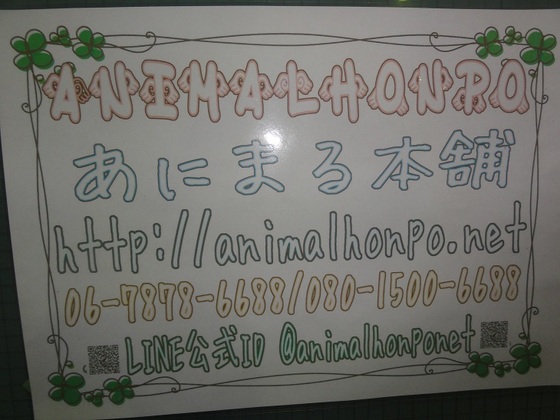 ANIMALHONPO
あにまる本舗
http://animalhonpo.net
06-7878-6688/080-1500-6688
LINE公式ID @animalhonponet